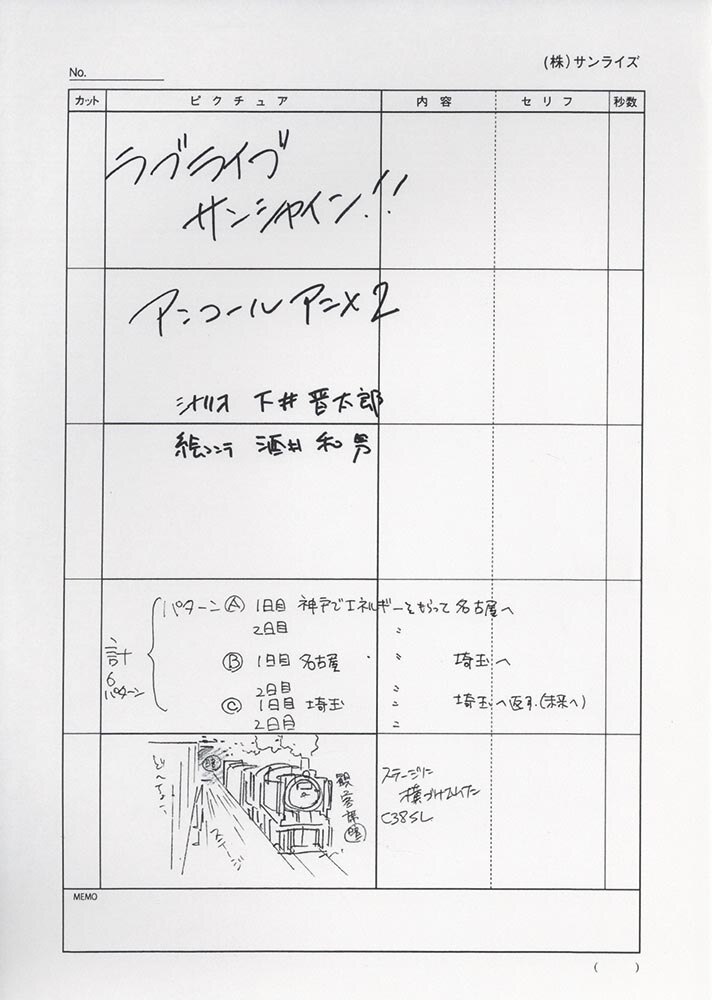 No.
(株)サンライズ
カット ピクチュア 内容 セリフ 秒数
ラブライブ
サンシャイン!!
アンコールアニメ2
シナリオ 下井 晋太郎
絵コンテ 酒井 和男
計
6
パターン
パターン Ⓐ 1日目 神戸でエネルギーをもらって 名古屋へ
2日目 〃
Ⓑ 1日目 名古屋 〃 埼玉へ
2日目 〃
Ⓒ 1日目 埼玉 埼玉へ返す.(未来へ)
2日目 〃
ステージ
観客席
ステージに
横づけされた
C38SL
MEMO
( )